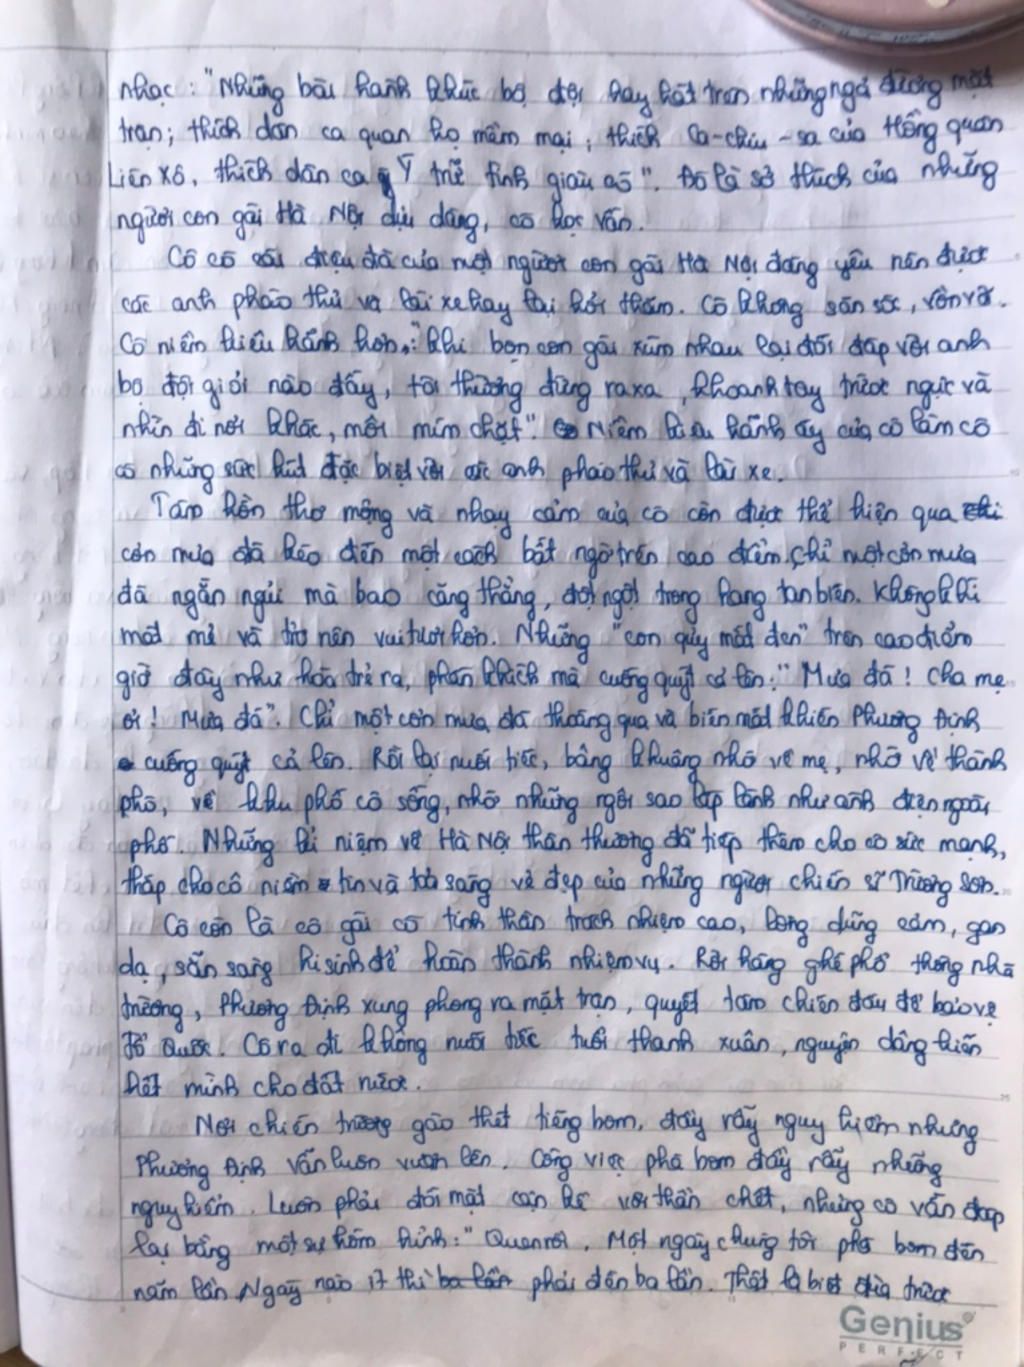 nhạc: "Những bài hành khúc bộ đội hay hát trên những ngả đường mặt
trận; thích dân ca quan họ mềm mại; thích Ca-chiu-sa của Hồng quân
Liên Xô, thích dân ca Ý trữ tình giàu có". Đó là sở thích của những
người con gái Hà Nội dịu dàng, có học vấn.
Cô có cái điệu đà của một người con gái Hà Nội đáng yêu nên được
các anh pháo thủ và lái xe hay lại hỏi thăm. Cô không săn sóc, vồn vã.
Cô niềm kiêu hãnh hơn,: "khi bọn con gái xúm nhau lại đối đáp với anh
bộ đội giỏi nào đấy, tôi thường đứng ra xa, khoanh tay trước ngực và
nhìn đi nơi khác, môi mím chặt". Niềm kiêu hãnh ấy của cô làm cô
có những sức hút đặc biệt với các anh pháo thủ và lái xe.
Tâm hồn thơ mộng và nhạy cảm của cô còn được thể hiện qua
cơn mưa đá kéo đến một cách bất ngờ trên cao điểm. Chỉ một cơn mưa
đã ngắn ngủi mà bao căng thẳng, đột ngột trong hang tan biến. Không khí
mát mẻ và trở nên vui tươi hơn. Những "con quỷ mắt đen" trên cao điểm
giờ đây như hóa trẻ ra, phấn khích mà cuống quýt cả lên: "Mưa đá! Cha mẹ
ơi! Mưa đá". Chỉ một cơn mưa đá thoáng qua và biến mất khiến Phương Định
cuống quýt cả lên. Rồi lại nuối tiếc, bâng khuâng nhớ về mẹ, nhớ về thành
phố, về khu phố cô sống, nhớ những ngôi sao lấp lánh như ánh điện ngoài
phố. Những kỉ niệm về Hà Nội thân thương đã tiếp thêm cho cô sức mạnh,
thắp cho cô niềm tin và toả sáng vẻ đẹp của những người chiến sĩ Trường Sơn.
Cô còn là cô gái có tinh thần trách nhiệm cao, lòng dũng cảm, gan
dạ, sẵn sàng hi sinh để hoàn thành nhiệm vụ. Rời hàng ghế phổ thông nhà
trường, Phương Định xung phong ra mặt trận, quyết tâm chiến đấu để bảo vệ
Tổ Quốc. Cô ra đi không nuối tiếc tuổi thanh xuân, nguyện dâng hiến
hết mình cho đất nước.
Nơi chiến trường gào thét tiếng bom, đầy rẫy nguy hiểm nhưng
Phương Định vẫn luôn vươn lên. Công việc phá bom đầy rẫy những
nguy hiểm. Luôn phải đối mặt cận kề với thần chết, nhưng cô vẫn đáp
lại bằng một sự hóm hỉnh: "Quen rồi. Một ngày chúng tôi phá bom đến
năm lần. Ngày nào ít thì ba lần phải đến ba lần. Thật là biết đùa trước
Genius
PERFECT